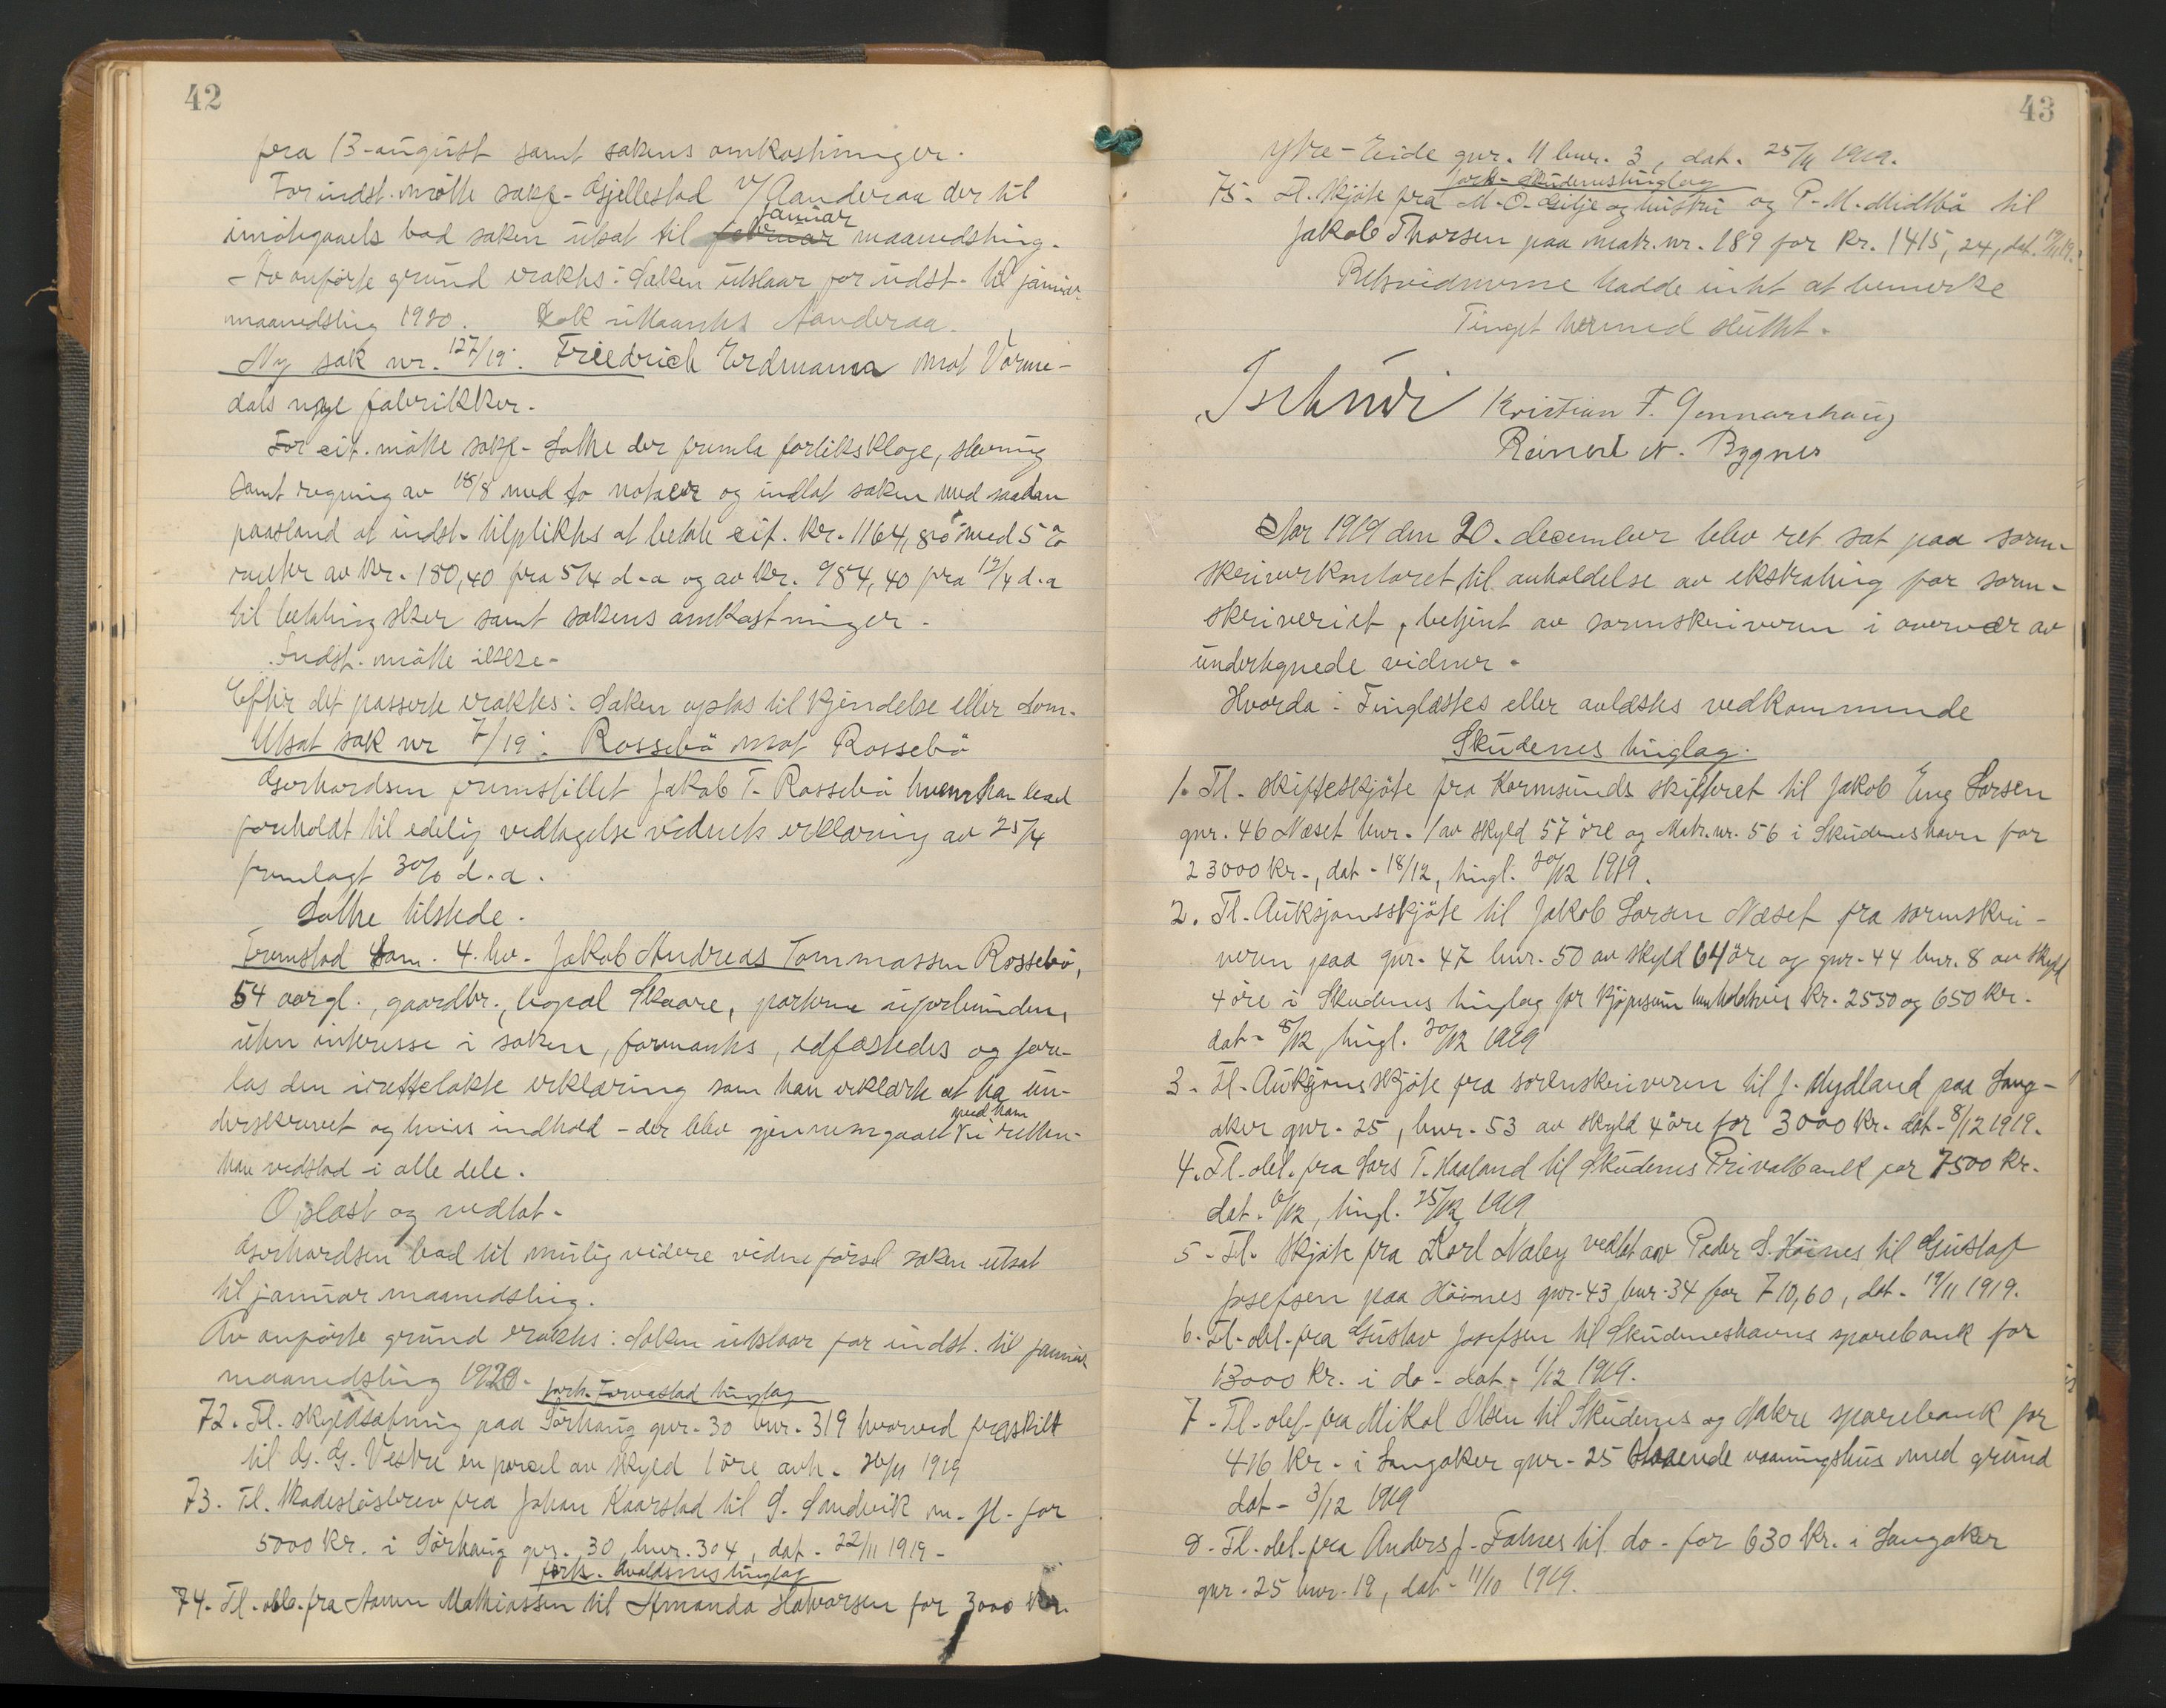 42
fra 13-august samt sakens omkostninger.
For indst. møtte sakf. Gjellestad v/ Aanderaa der til
imøtegaaels bad saken utsat til februar januar maanedsting.
Av anførte grund eraktes: Saken utstaar for indst. til januar
maanedsting 1920. Aanderaa.
Ny sak nr. 127/19: Friedrich Erdmann mot Vorme-
dals nye fabrikker.
For cit. møtte sakf. Lothe der fremla forliksklage, stevning
samt regning av 18/8 med to notaer og indlot saken med saadan
paastand at indst. tilpliktes at betale cit. kr. 1164,80 med 5 %
renter av kr. 180,40 fra 5/4 d.a og av kr. 984,40 fra 12/4 d.a
til betaling sker samt sakens omkostninger.
Indst. møtte ikke.
Efter det passerte eraktes: Saken optas til kjendelse eller dom.
Utsat sak nr 7/19: Rossebø mot Rossebø
Gerhardsen fremstillet Jakob T. Rossebø hvem han bad
foreholdt til edelig vedtagelse vidnets erklæring av 25/4
fremlagt 30/6 d.a.
Lothe tilstede.
Fremstod som 4. hv. Jakob Andreas Tommassen Rossebø,
54 aargl., gaardbr., bopæl Skaare, parterne uforbunden,
uten interesse i saken, formantes, edfæstedes og fore-
las den iretteslakte erklæring som han erklærte at ha un-
derskrevet og hvis indhold - der blev gjennemgaaet med ham i retten -
han vedstod i alle dele.
Oplæst og vedtat.
Gerhardsen bad til mulig videre vidneførsel saken utsat
til januar maanedsting.
Av anførte grund eraktes: Saken utstaar for indst. til januar
maanedsting 1920.
forts. Torvastad tinglag
72. Tl. skyldsætning paa Sørhaug gnr. 30 bnr. 319 hvorved fraskilt
til G. G. Vestre en parcel av skyld 1 øre avh. 26/11 1919
73. Tl. skadesløsbrev fra Johan Kaarstad til S. Sandvik m. fl. for
5000 kr. i Sørhaug gnr. 30 bnr. 304, dat. 22/11 1919 -
forts. Avaldsnes tinglag
74. Tl. obl. fra Aamun Mathiassen til Amanda Halvorsen for 3000 kr.
43
Ytre-Eide gnr. 11 bnr. 3, dat. 25/11 1919.
forts. Skudenes tinglag
75. Tl. skjøte fra M. O. Gilje og hustru og P. M. Midtbø til
Jakob Thorsen paa matr. nr. 189 for kr. 1415,24, dat. 19/11 19.
Retsvidnerne hadde intet at bemerke
Tinget hermed sluttet.
Kristian T. Gunnarshaug
Reinert N. Bygnes
Aar 1919 den 20. december blev ret sat paa soren-
skriverkontoret til anholdelse av ekstrating for soren-
skriveriet, betjent av sorenskriveren i overvær av
undertegnede vidner.
Hvorda: Tinglæstes eller avlæstes vedkommende
Skudenes tinglag.
1. Tl. skifteskjøte fra Karmsunds skifteret til Jakob Eng Larsen
gnr. 46 Næset bnr. 1 av skyld 57 øre og Matr. nr. 56 i Skudeneshavn for
23000 kr., dat. 18/12, tingl. 20/12 1919.
2. Tl. Auksjonsskjøte til Jakob Larsen Næset fra sorenskri-
veren paa gnr. 47 bnr. 50 av skyld 64 øre og gnr. 44 bnr. 8 av skyld
4 øre i Skudenes tinglag for kjøpesum henholdsvis kr. 2550 og 650 kr.
dat. 8/12 tingl. 20/12 1919
3. Tl. Auksjons skjøte fra sorenskriveren til J. Mydland paa Sang-
aker gnr. 25, bnr. 53 av skyld 4 øre for 3000 kr. dat. 8/12 1919.
4. Tl. obl. fra Lars T. Haaland til Skudenes Privatbank for 7500 kr.
dat. 6/12, tingl. 25/12 1919
5. Tl. skjøte fra Karl Naley vedtat av Peder S. Høines til Gustaf
Josefsen paa Høines gnr. 43 bnr. 34 for 710,60, dat. 19/11 1919.
6. Tl. obl. fra Gustav Josefsen til Skudeneshavns sparebank for
13000 kr. i do. dat. 1/12 1919.
7. Tl. obl. fra Mikal Olsen til Skudenes og Aakre sparebank for
416 kr. i Sangaker gnr. 25 staaende vaaningshus med grund
dat. 3/12 1919
8. Tl. obl. fra Anders J. Falnes til do. for 630 kr. i Sangaker
gnr. 25 bnr. 19, dat. 11/10 1919.